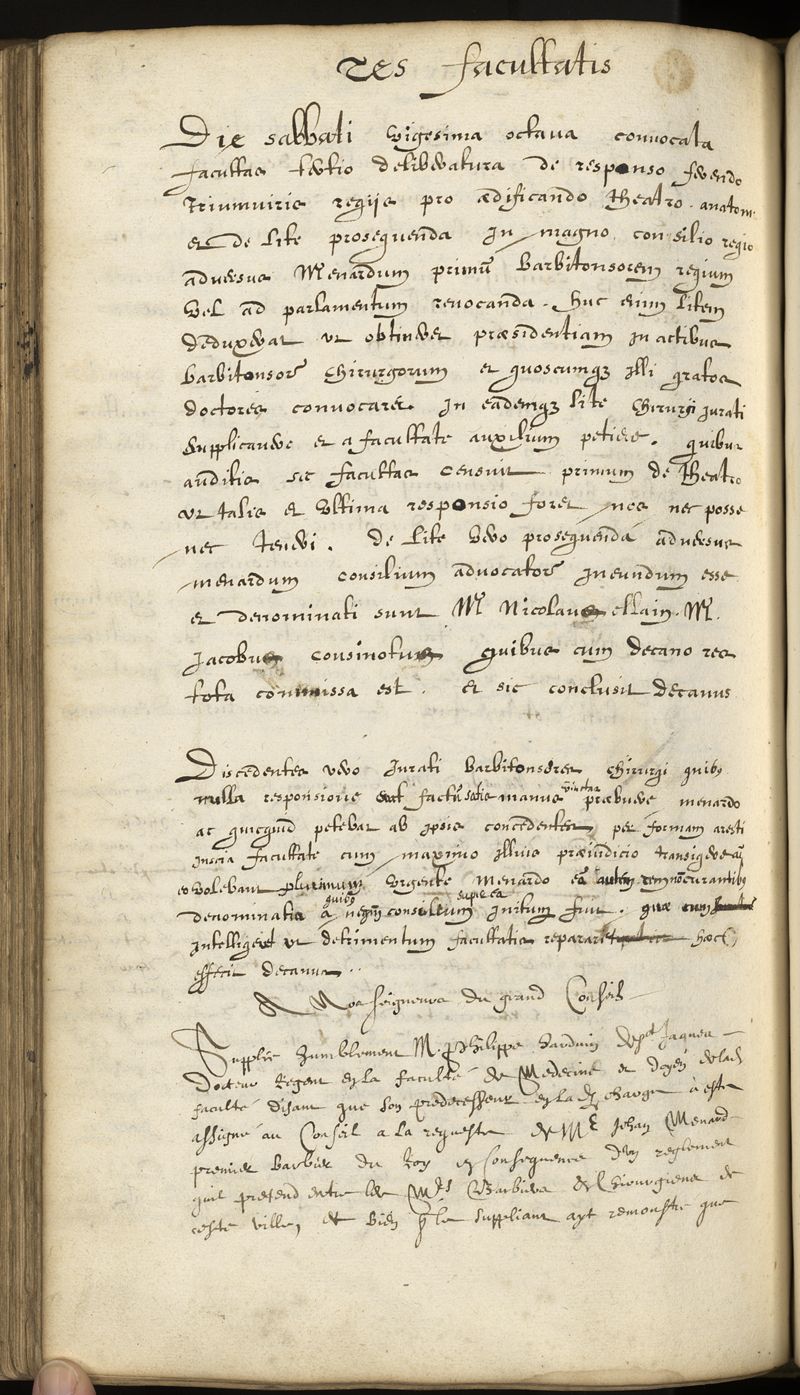 res facultatis
Die sabbati vigesima octava convocata
facultas tertio deliberatura de responso ferendo
triumviris regiis pro ædificando theatro anatom.
et de lite prosequenda in magno consilio regio
adversus Mm Menardum primũ barbitonsorem regium
vel ad parlamentum revocanda. huc enim litem
deduxerat ut obtineret præsidentiam in actibus
barbitonsorũ chirurgorum et quoscumqz illi gratos
doctores convocaret. In eademqz lite chirurgi jurati
supplicavere et a facultate auxilium petiere. quibus
auditis sic facultas censuit primum de theatro
ut talis et ultima responsio foret nos nec posse
nec teneri. de lite vero prosequenda adversus
menardum consilium advocatorũ ineundum esse
et denominati sunt Mr Nicolaus ellain. Mr.
Jacobus cousinotus quibus cum decano res
tota commissa est. et sic conclusit decanus
Discedentes vero jurati barbitonsores chirurgi quibs
nulla responsione factũ satis manus victas præbuere menardo
ac quicquid petebat ab ipsis concedentes, per formam aresti
inscia facultate cum maximo illius præiudicio transigere
volebant plurimum urgente Menardo eã autem rem nõ curantibs
denominatis a quibs neqz consilium super ea initum fuit. quæ cum
intelligeret ut detrimentum facultatis repararet hæc
effecit decanus..
A Nos seigneurs du grand Conseil
Supplie humblement M. Philippe harduin de st Jaques
docteur Regent en la faculté de Medecine et doyen de lad.
faculté disant que son predecesseur en lad. charge a esté
assigné au Conseil a la requeste de Me Jehan Menard
premier barbier du Roy en consequence d'un reglement
quil pretend entre les Mrs Barbiers Chirurgiens de
ceste ville, et bien q le suppliant ayt remonstré que